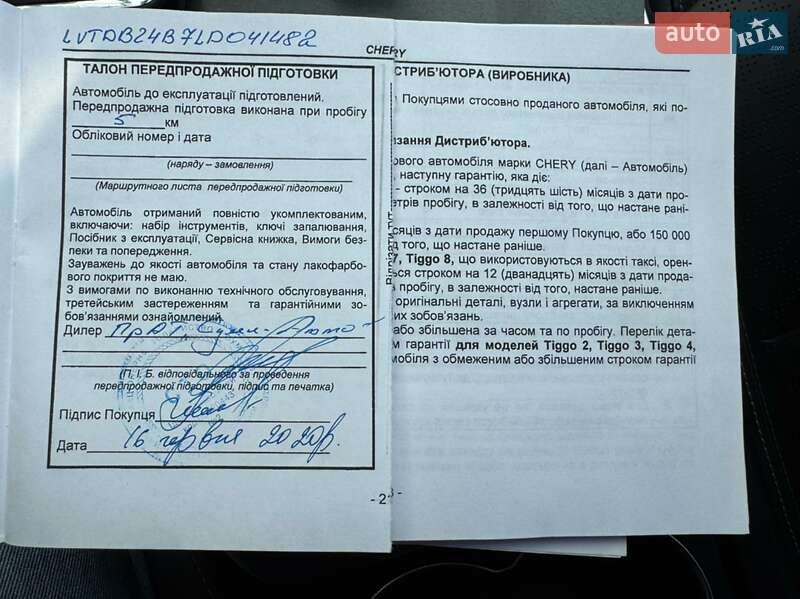 LVTDB24B7LD041482
CHERY
ТАЛОН ПЕРЕДПРОДАЖНОЇ ПІДГОТОВКИ
Автомобіль до експлуатації підготовлений.
Передпродажна підготовка виконана при пробігу
5 км
Обліковий номер і дата
(наряду – замовлення)
(Маршрутного листа передпродажної підготовки)
Автомобіль отриманий повністю укомплектованим,
включаючи: набір інструментів, ключі запалювання,
Посібник з експлуатації, Сервісна книжка, Вимоги безпеки та попередження.
Зауважень до якості автомобіля та стану лакофарбового покриття не маю.
З вимогами по виконанню технічного обслуговування,
третейським застереженням та гарантійними зобов'язаннями ознайомлений.
Дилер ПрАТ
(П. І. Б. відповідального за проведення
передпродажної підготовки, підпис та печатка)
Підпис Покупця
Дата 16 червня 2020р.
- 2
СТРИБ'ЮТОРА (ВИРОБНИКА)
Покупцями стосовно проданого автомобіля, які по-
зання Дистриб'ютора.
ового автомобіля марки CHERY (далі – Автомобіль)
, наступну гарантію, яка діє:
- строком на 36 (тридцять шість) місяців з дати про-
етрів пробігу, в залежності від того, що настане рані-
сяців з дати продажу першому Покупцю, або 150 000
від того, що настане раніше.
7, Tiggo 8, що використовуються в якості таксі, орен-
ься строком на 12 (дванадцять) місяців з дати прода-
пробігу, в залежності від того, що настане раніше.
оригінальні деталі, вузли і агрегати, за виключенням
их зобов'язань.
або збільшена за часом та по пробігу. Перелік дета-
м гарантії для моделей Tiggo 2, Tiggo 3, Tiggo 4,
мобіля з обмеженим або збільшеним строком гарантії
3 -
auto RIA.com